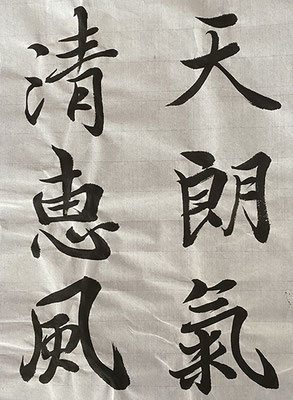 天朗氣
清恵風